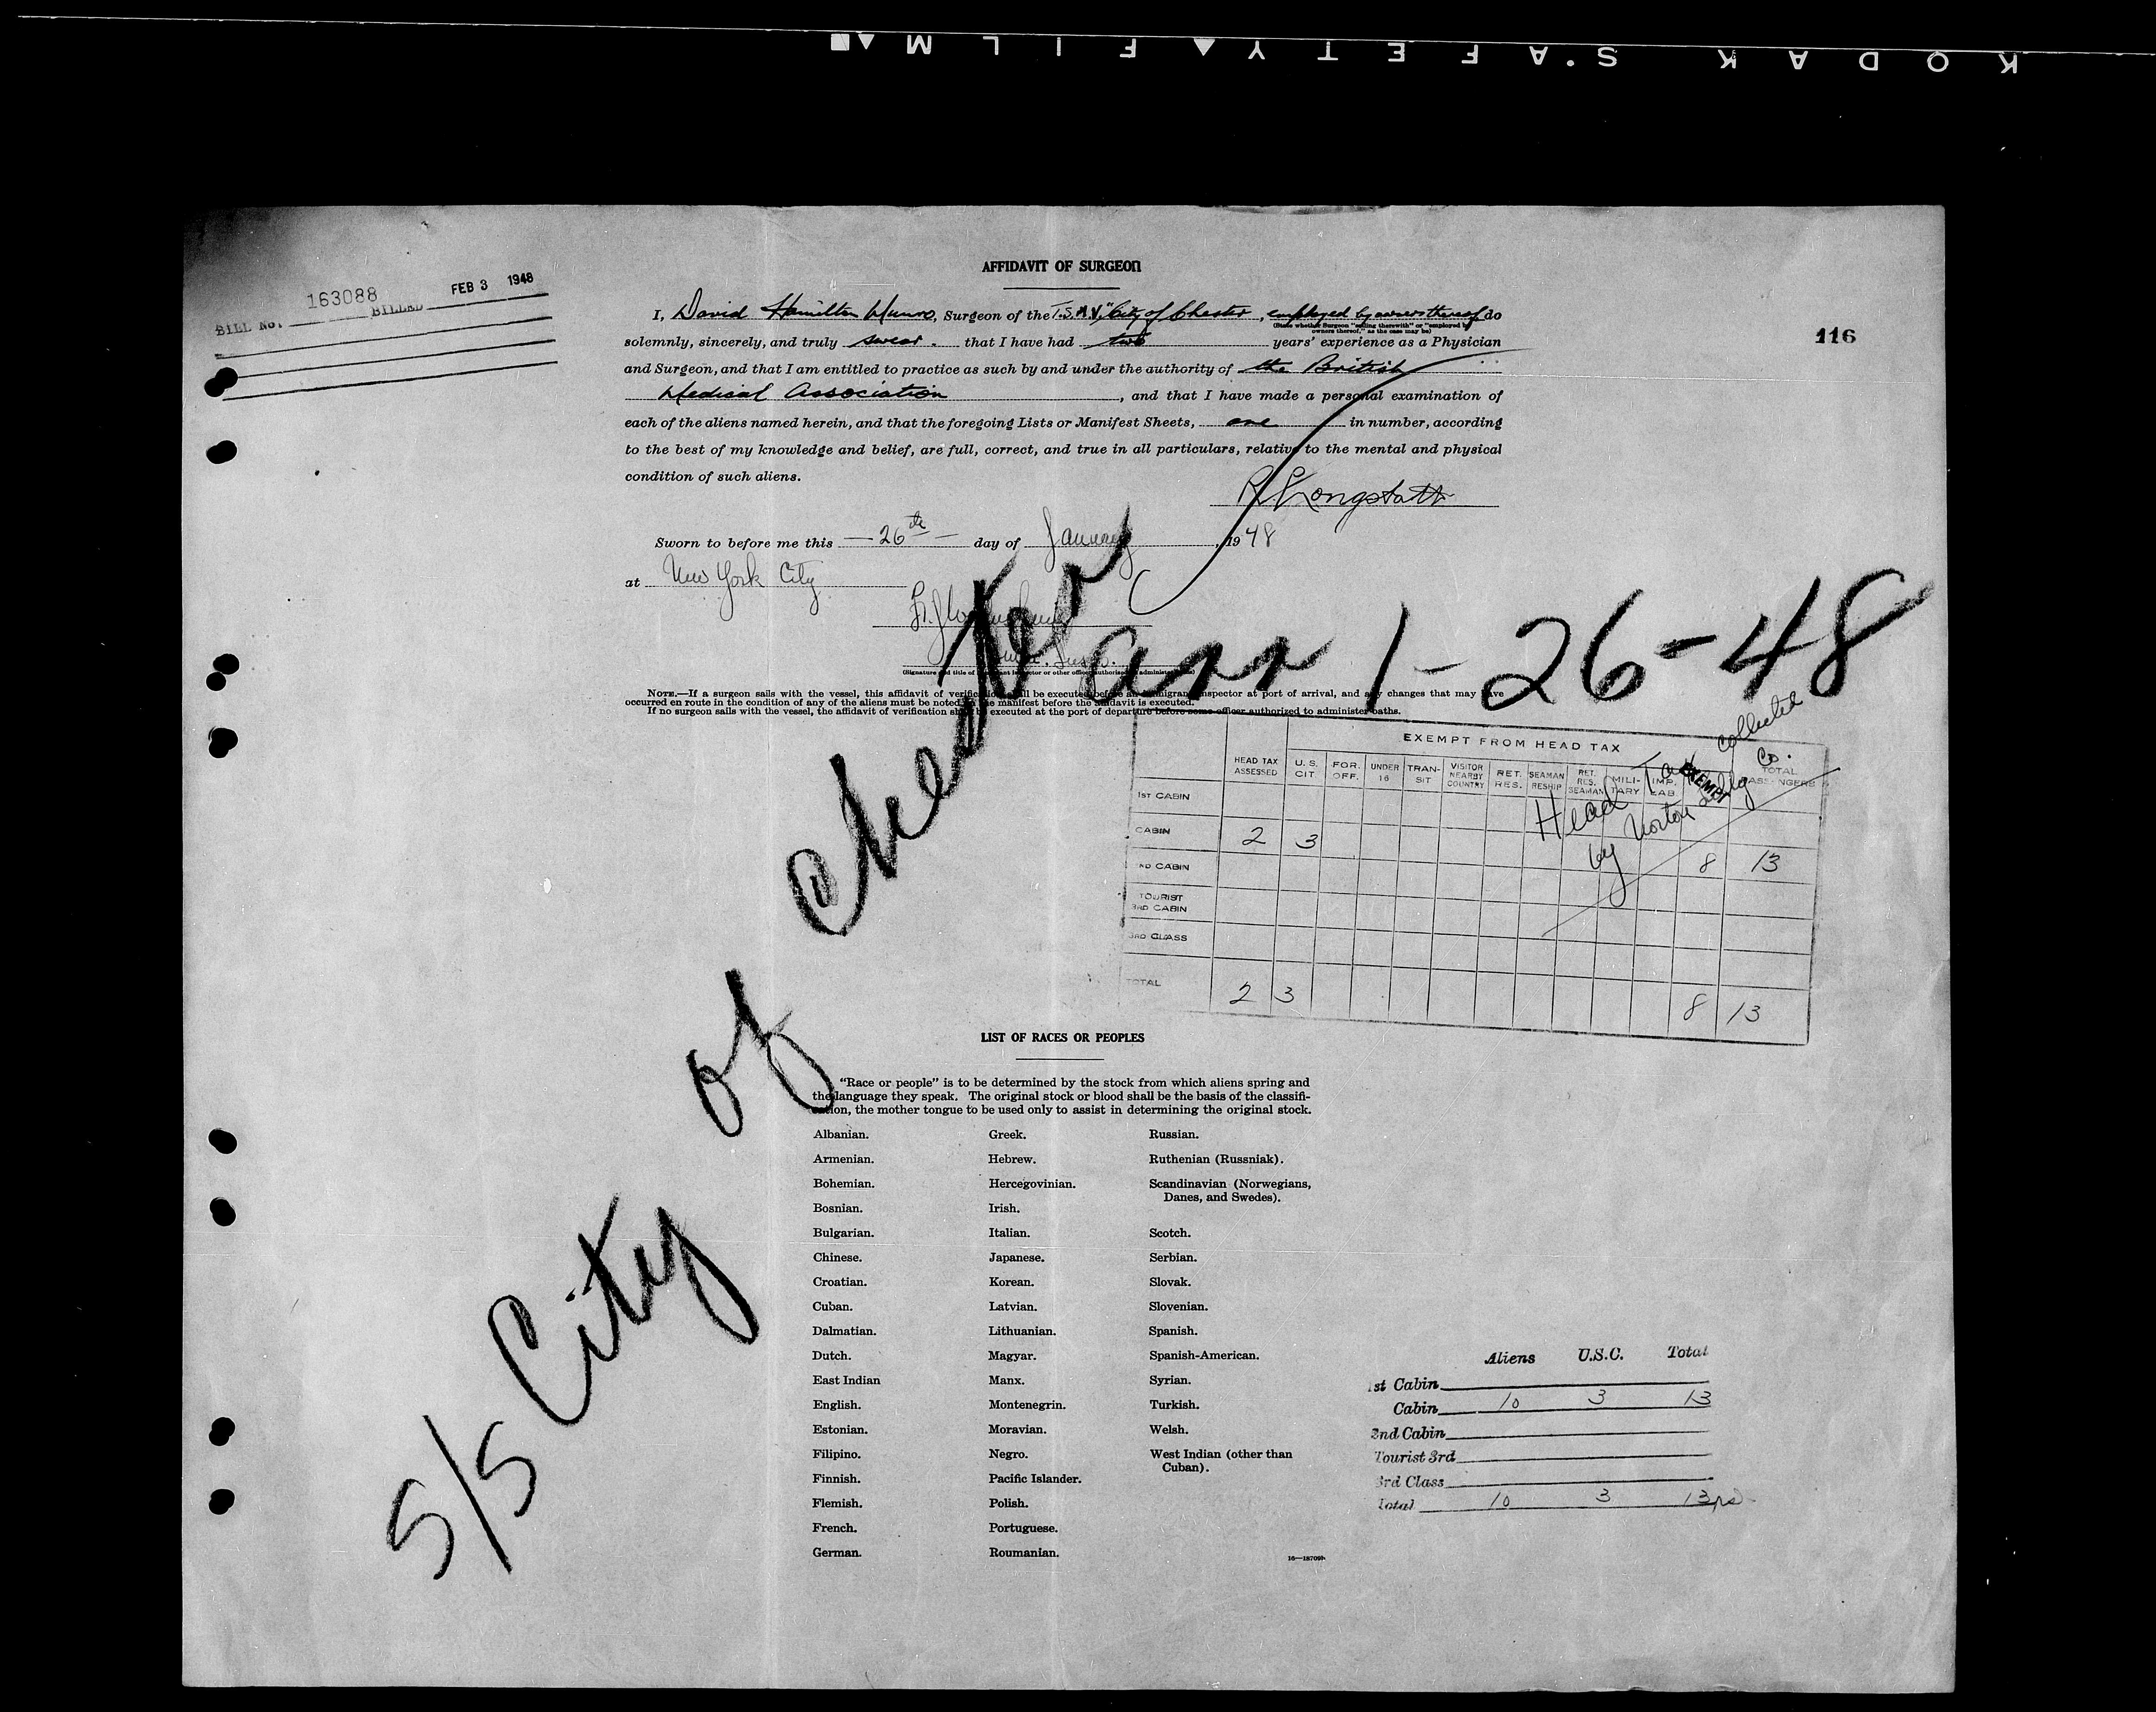 KODAK SAFETY FILM
163088
FEB 3 1948
BILL No. BILLED
116
AFFIDAVIT OF SURGEON
I, David Hamilton Munro, Surgeon of the T.S.M.V. "City of Chester, employed by owners thereof do
(State whether Surgeon "sailing therewith" or "employed by
owners thereof," as the case may be)
solemnly, sincerely, and truly swear. that I have had two years' experience as a Physician
and Surgeon, and that I am entitled to practice as such by and under the authority of the British
Medical Association, and that I have made a personal examination of
each of the aliens named herein, and that the foregoing Lists or Manifest Sheets, one in number, according
to the best of my knowledge and belief, are full, correct, and true in all particulars, relative to the mental and physical
condition of such aliens.
Sworn to before me this 26th day of January, 1948
at New York City
(Signature and title of immigrant inspector or other officer authorized to administer
NOTE.—If a surgeon sails with the vessel, this affidavit of verification shall be executed before an immigrant inspector at port of arrival, and any changes that may have
occurred en route in the condition of any of the aliens must be noted on the manifest before the affidavit is executed.
If no surgeon sails with the vessel, the affidavit of verification shall be executed at the port of departure before some officer authorized to administer oaths.
S/S City of Chester arr 1-26-48
EXEMPT FROM HEAD TAX
HEAD TAX ASSESSED U. S. CIT FOR. OFF. UNDER 16 TRAN-SIT VISITOR NEARBY COUNTRY RET. RES. SEAMAN RESHIP RET. RES. SEAMAN MILI-TARY IMP. LAB. EXEMPT TOTAL PASSENGERS
Head Tax collected
by Norton Lilly Co.
1ST CABIN
CABIN 2 3 8 13
2ND CABIN
TOURIST
3RD CABIN
3RD CLASS
TOTAL 2 3 8 13
LIST OF RACES OR PEOPLES
"Race or people" is to be determined by the stock from which aliens spring and
the language they speak. The original stock or blood shall be the basis of the classifi-
cation, the mother tongue to be used only to assist in determining the original stock.
Albanian. Greek. Russian.
Armenian. Hebrew. Ruthenian (Russniak).
Bohemian. Hercegovinian. Scandinavian (Norwegians,
Danes, and Swedes).
Bosnian. Irish.
Bulgarian. Italian. Scotch.
Chinese. Japanese. Serbian.
Croatian. Korean. Slovak.
Cuban. Latvian. Slovenian.
Dalmatian. Lithuanian. Spanish.
Dutch. Magyar. Spanish-American.
East Indian Manx. Syrian.
English. Montenegrin. Turkish.
Estonian. Moravian. Welsh.
Filipino. Negro. West Indian (other than
Cuban).
Finnish. Pacific Islander.
Flemish. Polish.
French. Portuguese.
German. Roumanian.
Aliens U.S.C. Total
1st Cabin
Cabin 10 3 13
2nd Cabin
Tourist 3rd
3rd Class
Total 10 3 13